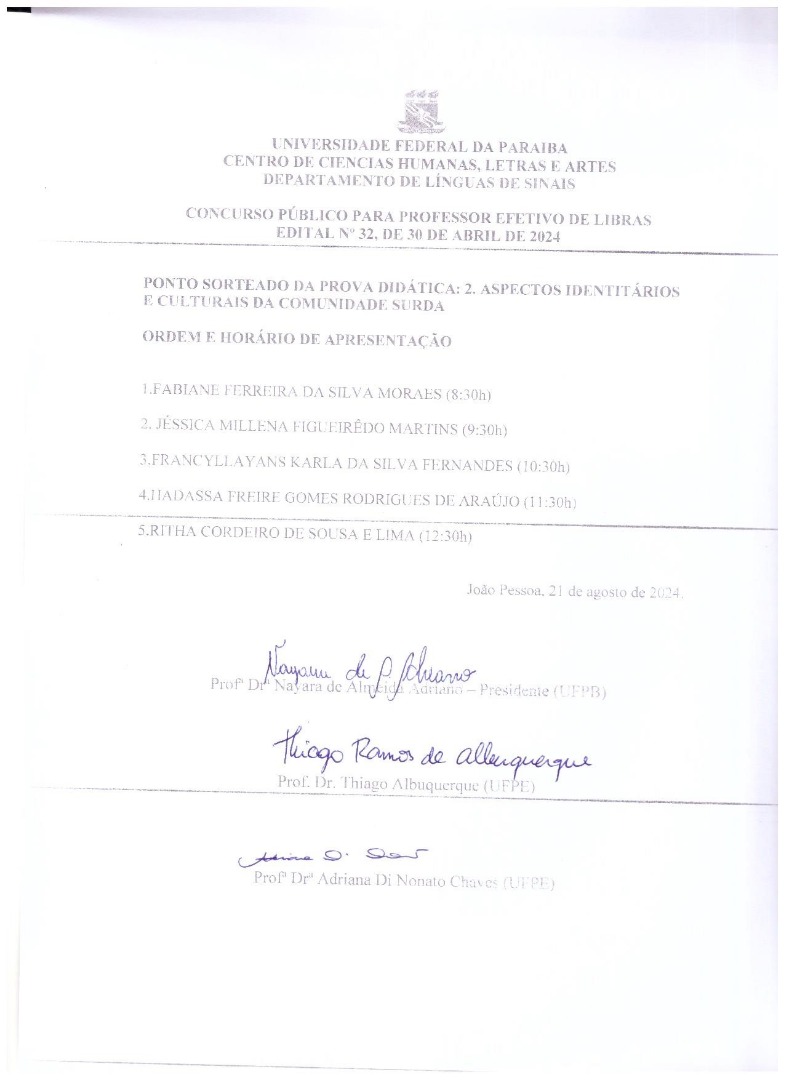 UNIVERSIDADE FEDERAL DA PARAIBA
CENTRO DE CIENCIAS HUMANAS, LETRAS E ARTES
DEPARTAMENTO DE LÍNGUAS DE SINAIS
CONCURSO PÚBLICO PARA PROFESSOR EFETIVO DE LIBRAS
EDITAL Nº 32, DE 30 DE ABRIL DE 2024
PONTO SORTEADO DA PROVA DIDÁTICA: 2. ASPECTOS IDENTITÁRIOS
E CULTURAIS DA COMUNIDADE SURDA
ORDEM E HORÁRIO DE APRESENTAÇÃO
1.FABIANE FERREIRA DA SILVA MORAES (8:30h)
2. JÉSSICA MILLENA FIGUEIRÊDO MARTINS (9:30h)
3.FRANCYLLAYANS KARLA DA SILVA FERNANDES (10:30h)
4.HADASSA FREIRE GOMES RODRIGUES DE ARAÚJO (11:30h)
5.RITHA CORDEIRO DE SOUSA E LIMA (12:30h)
João Pessoa, 21 de agosto de 2024.
Profª Drª Nayara de Almeida Adriano – Presidente (UFPB)
Thiago Ramos de Albuquerque
Prof. Dr. Thiago Albuquerque (UFPE)
Profª Drª Adriana Di Nonato Chaves (UFPE)